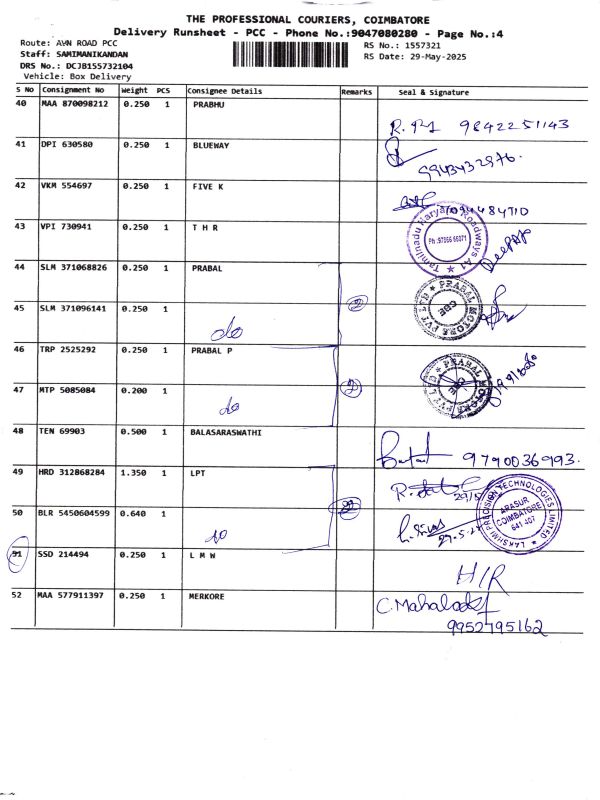 THE PROFESSIONAL COURIERS, COIMBATORE
Delivery Runsheet - PCC - Phone No.:9047080280 - Page No.:4
Route: AVN ROAD PCC
RS No.: 1557321
Staff: SAMIMANIKANDAN
RS Date: 29-May-2025
DRS No.: DCJB155732104
Vehicle: Box Delivery
S No Consignment No Weight PCS Consignee Details Remarks Seal & Signature
40 MAA 870098212 0.250 1 PRABHU
9842251143
41 DPI 630580 0.250 1 BLUEWAY
9943432976.
42 VKM 554697 0.250 1 FIVE K
43 VPI 730941 0.250 1 T H R
Tamilnadu Haryana Roadways
Deepak
44 SLM 371068826 0.250 1 PRABAL
2
PRABAL MOTORS PVT LTD
CBE
45 SLM 371096141 0.250 1
do
46 TRP 2525292 0.250 1 PRABAL P
2
PRABAL MOTORS PVT LTD
47 MTP 5085084 0.200 1
do
48 TEN 69903 0.500 1 BALASARASWATHI
9790036993.
49 HRD 312868284 1.350 1 LPT
29/5
LAKSHMI PRECISION TECHNOLOGIES LIMITED
ARASUR
COIMBATORE
641 407
50 BLR 5450604599 0.640 1
do
51 SSD 214494 0.250 1 L M W
H/R
52 MAA 577911397 0.250 1 MERKORE
9952795162